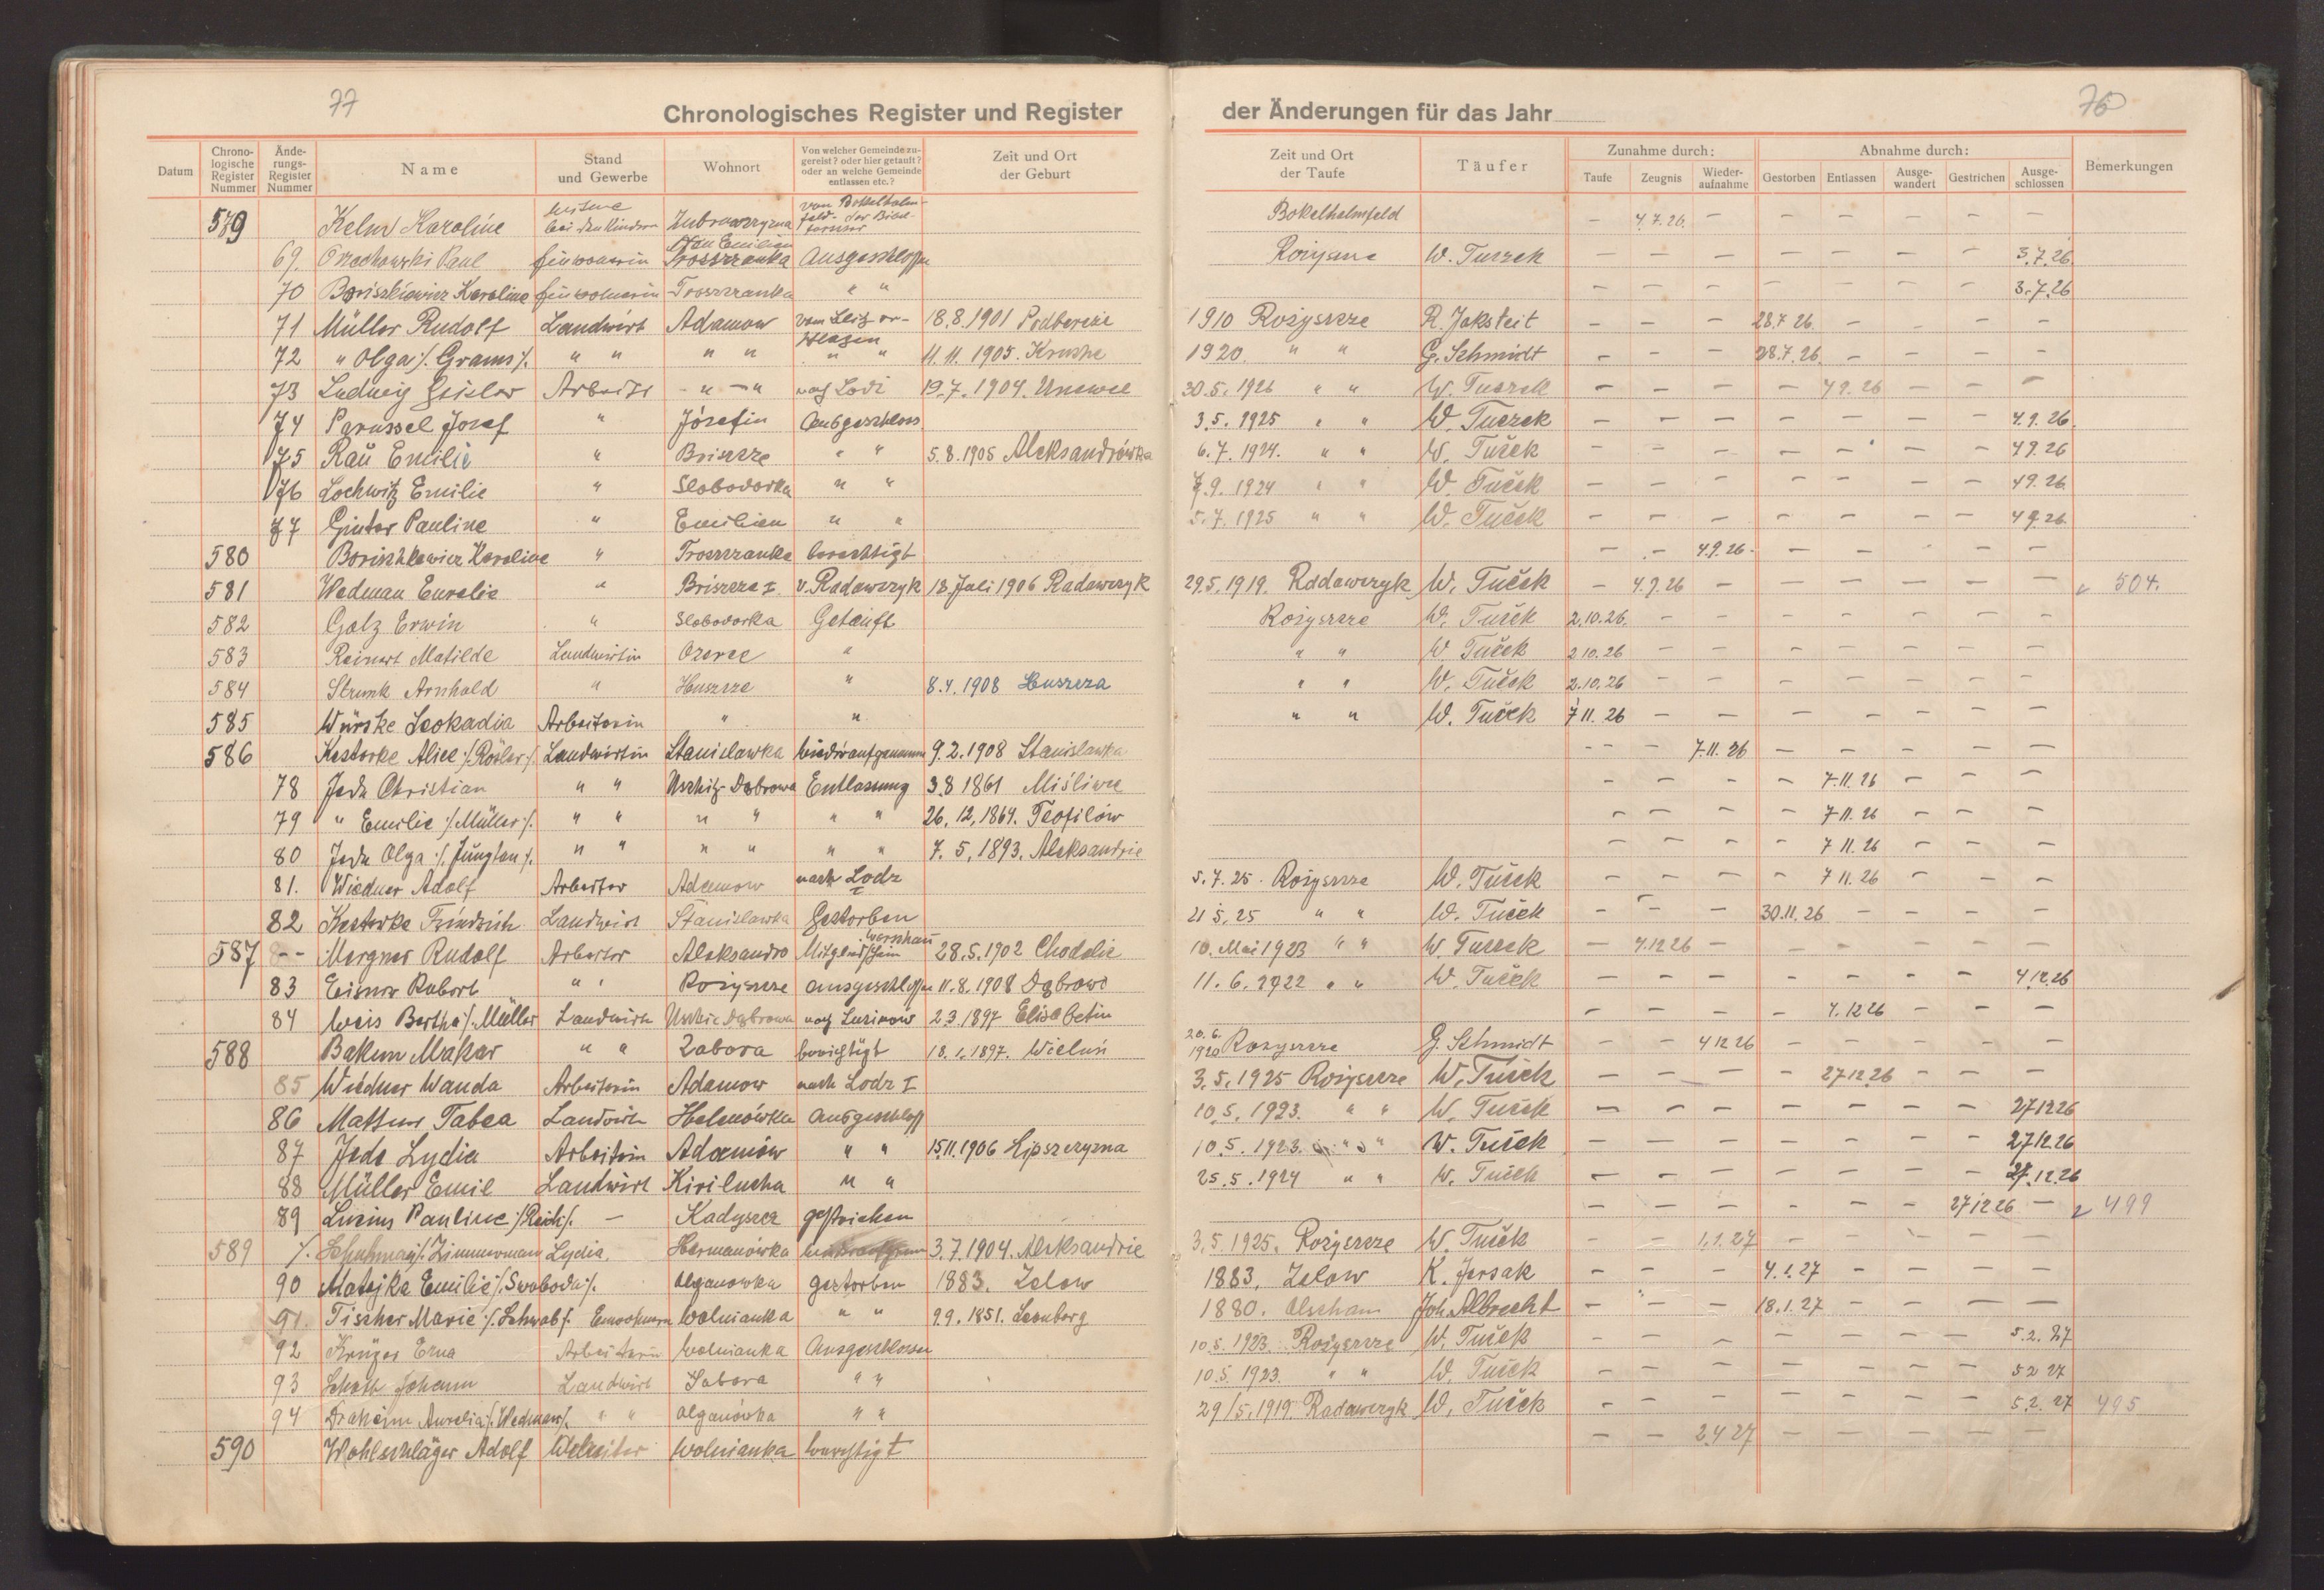 77
76
Chronologisches Register und Register der Änderungen für das Jahr
Datum | Chronologische Register Nummer | Änderungs-Register Nummer | Name | Stand und Gewerbe | Wohnort | Von welcher Gemeinde zugereist? oder hier getauft? oder an welche Gemeinde entlassen etc.? | Zeit und Ort der Geburt | Zeit und Ort der Taufe | Täufer | Zunahme durch: Taufe | Zeugnis | Wiederaufnahme | Abnahme durch: Gestorben | Entlassen | Ausgewandert | Gestrichen | Ausgeschlossen | Bemerkungen
579 Kelm Karoline bei den Kindern von Bokelholm- Bokelholmfeld – 4.7.26. – – – – – –
69. Paul Trosszranka Ausgeschlossen W. Tuczek – – – – – – – 3.7.26.
70 Boriszkiewicz Karoline Trosszranka " " – – – – – – – 3.7.26
71 Müller Rudolf Landwirt Adamow 18.8.1901 1910 Rożyszcze R. Jaksteit – – – 28.7.26. – – – –
72 " Olga /. Grams /. " " " " " " 11.11.1905. 1920. " " G. Schmidt – – – 28.7.26. – – – –
73 Ludwig Geisler Arbeiter – " – " nach Lodz 19.7.1904. 30.5.1926 " " W. Tuczek – – – – 4.9.26 – – –
74 Parussel Josef " Józefin Ausgeschloss 3.5.1925 " " W. Tuczek – – – – – – – 4.9.26.
75 Rau Emilie " Briszcze " " 5.8.1905 Aleksandrówka 6.7.1924. " " W. Tuček – – – – – – – 4.9.26
76 Lochwitz Emilie " Slobodorka " " 7.9.1924 " " W. Tuček – – – – – – – 4.9.26.
77 Ginter Pauline " Emilien " " 5.7.1925 " " W. Tuček – – – – – – – 4.9.26.
580 Borischkewicz Karoline " Troszczanka berechtigt – – 4.9.26. – – – – –
581 Wedman " Briszcze I. v. Radawczyk 18. Juli 1906 Radawczyk 29.5.1919. Radawczyk W. Tuček – 4.9.26 – – – – – – 504.
582 Golz Erwin " Slobodorka Getauft Rożyszcze W. Tuček 2.10.26. – – – – – – –
583 Reinert Matilde Landwirtin Ozerce " " " W. Tuček 2.10.26 – – – – – – –
584 Strunk Arnhold " Huszcze " 8.4.1908 Huszcza " " W. Tuček 2.10.26 – – – – – – –
585 Würzke Leokadia Arbeiterin " " " " W. Tuček 7.11.26 – – – – – – –
586 Kesterke Alice /. Rösler /. Landwirtin Stanislawka wiederaufgenommen 9.2.1908 Stanislawka – – 7.11.26 – – – – –
78 Jede Christian " " Uschitz Dąbrowa Entlassung 3.8.1861 Miśliwce – – – – 7.11.26 – – –
79 " Emilie /. Müller /. " " " " " " 26.12.1864. Teofilów – – – – 7.11.26 – – –
80 Jede Olga /. /. " " " " " " 7.5.1893. Aleksandrie – – – – 7.11.26 – – –
81. Wiedner Adolf Arbeiter Adamow nach Lodz I 5.7.25. Rożyszcze W. Tuček – – – – 7.11.26 – – –
82 Kesterke Friedrich Landwirt Stanislawka Gestorben 21.5.25 " " W. Tuček – – – 30.11.26 – – – –
587 -- Mergner Rudolf Arbeiter Aleksandro Warschau 28.5.1902 Chodelie 10. Mai 1923 " " W. Tuczek – 4.12.26 – – – – – –
83 Eisner Robert " " Rożyszcze ausgeschlossen 11.8.1908 Dąbrowo 11.6.1922 " " W. Tuček – – – – – – – 4.12.26
84 Weis Bertha /. Müller Landwirtin Dąbrowa nach Lucinow 2.3.1897 Elisabetin – – – – 4.12.26 – – –
588 Bakun Makar " " Zabora berechtigt 18.1.1897. Wieluń 20.6.1920 Rożyszcze G. Schmidt – – 4.12.26 – – – – –
85 Wiedner Wanda Arbeiterin Adamow nach Lodz I 3.5.1925 Rożyszcze W. Tuček – – – – 27.12.26 – – –
86 Tabea Landwirtin Helenówka ausgeschloss 10.5.1923. " " W. Tuček – – – – – – – 27.12.26
87 Jede Lydia Arbeiterin Adamów " " 15.11.1906 Lipszczyzna 10.5.1923. " " W. Tuček – – – – – – – 27.12.26
88 Müller Emil Landwirt Kirilucha " " 25.5.1924 " " W. Tuček – – – – – – – 27.12.26
89 Lucius Pauline /. Reich /. – Kadyszcz gestrichen – – – – – – 27.12.26 – 499
589 /. Zimmermann Lydia Hermanówka 3.7.1904. Aleksandrie 3.5.1925. Rożyszcze W. Tuček – – 1.1.27 – – – – –
90 Matejka Emilie /. Swoboda /. Olganowka gestorben 1883. Zelow 1883, Zelow K. Jersak – – – 4.1.27 – – – –
91. Tischer Marie /. Schwab /. Wolnianka " " 9.9.1851. 1880. Joh. Albrecht – – – 18.1.27 – – – –
92 Krüger Erna Arbeiterin Wolnianka Ausgeschlossen 10.5.1923 Rożyszcze W. Tuček – – – – – – – 5.2.27
93 Johann Landwirt Zabora " " 10.5.1923. " " W. Tuček – – – – – – – 5.2.27
94 Draheim Aurelia /. Wedman /. " " Olganówka " " 29/5.1919. Radawczyk W. Tuček – – – – – – – 5.2.27 495
590 Wohlschläger Adolf Wolnianka berechtigt – – 2.4.27 – – – – –